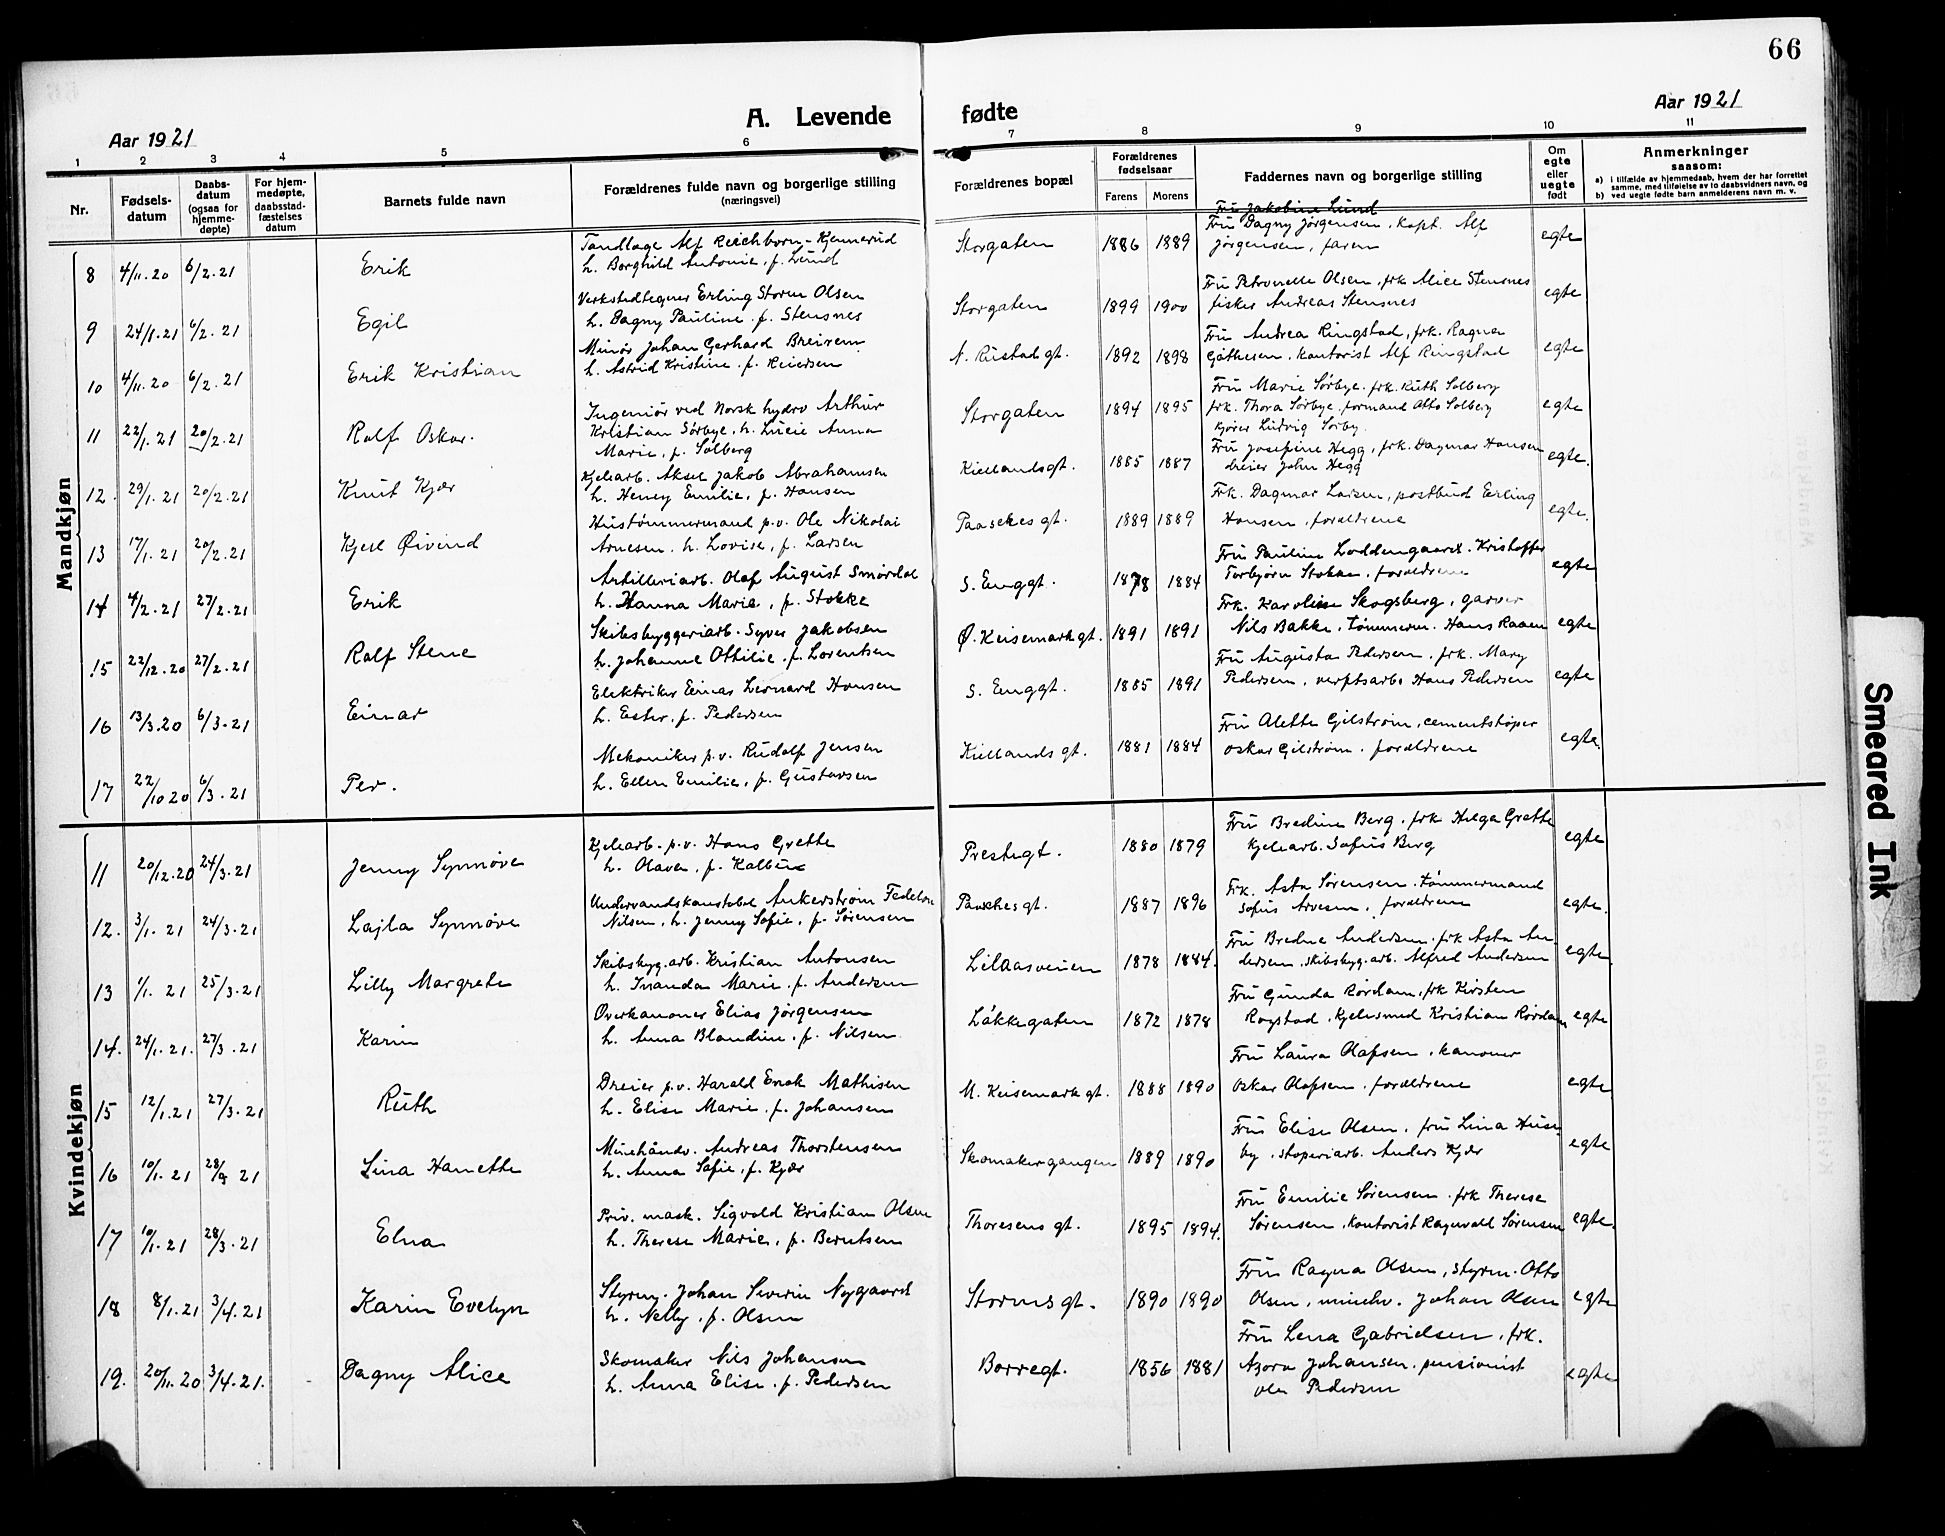 66
Aar 1921
A. Levende fødte
Aar 1921
1 2 3 4 5 6 7 8 9 10 11
Nr.
Fødsels-
datum
Daabs-
datum
(ogsaa for
hjemme-
døpte)
For hjem-
medøpte,
daabsstad-
fæstelses
datum
Barnets fulde navn
Forældrenes fulde navn og borgerlige stilling
(næringsvei)
Forældrenes bopæl
Forældrenes
fødselsaar
Farens Morens
Faddernes navn og borgerlige stilling
Om
egte
eller
uegte
født
Anmerkninger
saasom:
a) i tilfælde av hjemmedaab, hvem der har forrettet
samme, med tilføielse av to daabsvidners navn, og
b) ved uegte fødte barn anmelderens navn m. v.
Mandkjøn
8 4/11.20 6/2.21 Erik
Tandlæge Alf Reichborn-Kjennerud
h. Borghild Antonie, f. Lund
Storgaten 1886 1889
Fru Jakobine Lund
Fru Dagny Jørgensen, kapt. Alf
Jørgensen, faren
egte
9 24/1.21 6/2.21 Egil
Verkstedtegner Erling Storm Olsen
h. Dagny Pauline f. Stensnes
Storgaten 1899 1900
Fru Petronelle Olsen, frk. Alice Stensnes
fisker Andreas Stensnes
egte
10 4/11.20 6/2.21 Erik Kristian
Minør Johan Gerhard Breirem
h. Astrid Kristine f. Reiersen
N. Rustad gt. 1892 1898
Fru Andrea Ringstad, frk. Ragna
Gåthesen, kontorist Alf Ringstad
egte
11 22/1.21 20/2.21 Rolf Oskar.
Ingeniør ved Norsk hydro Arthur
Kristian Sørbye, h. Lucie Anna
Marie, f. Solberg
Storgaten 1894 1895
Fru Marie Sørbye, frk. Ruth Solberg
frk. Thora Sørbye, formand Otto Solberg
kjører Ludvig Sørby.
egte
12. 29/1.21 20/2.21 Knut Kjær
Kjelearb. Aksel Jakob Abrahamsen
h. Henny Emilie, f. Hansen
Kiellandsgt. 1885 1887
Fru Josefine Hegg, frk. Dagmar Hansen
dreier John Hegg
egte.
13 17/1.21 20/2.21 Kjell Øivind
Hustømmermand p.v. Ole Nikolai
Arnesen. h. Lovise, f. Larsen
Paaskes gt. 1889 1889
Frk. Dagmar Larsen, postbud Erling
Hansen, forældrene
egte.
14 4/2.21 27/2.21 Erik
Artilleriarb. Olaf August Smørdal
h. Hanna Marie, f. Stokke
S. Enggt. 1878 1884
Fru Pauline Loddengaard, Kristoffer
Torbjørn Stokke, forældrene
egte
15 22/12.20 27/2.21 Rolf Stene
Skibsbyggeriarb. Syver Jakobsen
h. Johanne Ottilie f. Lorentsen
Ø. Keisemark gt. 1891 1891
Frk. Karoline Skogsberg, garver
Nils Bakke, tømmerm. Hans Raaen
egte
16 13/3.20 6/3.21 Einar
Elektriker Einar Leonard Hansen
h. Ester, f. Pedersen
S. Enggt. 1885 1891
Fru Augusta Pedersen, frk. Mary
Pedersen, verftsarb. Hans Pedersen
egte
17 22/10 20 6/3.21 Per.
Mekaniker p.v. Rudolf Jensen
h. Ellen Emilie, f. Gustavsen
Kiellands gt. 1881 1884
Fru Alette Gilstrøm, cementstøper
Oskar Gilstrøm, forældrene
egte.
Kvindekjøn
11 20/12.20 24/3.21 Jenny Synnøve
Kjelearb. p.v. Hans Grette
h. Olava, f. Kalbuen
Prestegt. 1880 1879
Fru Bredine Berg, frk Helga Grette
kjelearb. Sofus Berg
egte
12. 3/1.21 24/3.21 Lajla Synnøve
Undervandskonstabel Ankerstrøm
Nilsen, h. Jenny Sofie, f. Sørensen
Paaskes gt. 1887 1896
Frk. Asta Sørensen, tømmermand
Sofus Arvesen, forældrene
egte.
13 1/1.21 25/3.21 Lilly Margrete
Skibsbyg.arb. Kristian Antonsen
h. Inanda Marie, f. Andersen
Lilaasveien 1878 1884.
Fru Bredine Andersen, frk Asta An-
dersen, skibsbyg.arb. Alfred Andersen
egte.
14. 24/1.21. 27/3.21 Karin
Overkanoner Elias Jørgensen
h. Anna Blandine, f. Nilsen
Løkkegaten 1872 1878
Fru Gunda Rørdam, frk Kirsten
Rogstad, kjelesmed Kristian Rørdam
egte
15 12/1.21 27/3.21 Ruth
Dreier p.v. Harald Enok Mathisen
h. Elise Marie, f. Johansen
M. Keisemark gt. 1888 1890
Fru Laura Olafsen, kanoner
Oskar Olafsen, forældrene
egte
16 10/1.21 28/3 21 Lina Hanette
Minehåndv. Andreas Thorstensen
h. Anna Sofie, f. Kjær
Skomakergangen 1889 1890
Fru Elise Olsen, fru Lina Huse-
by, støperiarb. Anders Kjær
egte
17 10/1.21 28/3.21 Elna
Priv. mask. Sigvald Kristian Olsen
h. Therese Marie, f. Berntsen
Thoresens gt. 1895 1894.
Fru Emilie Sørensen, frk Therese
Sørensen, kontorist Ragnvald Sørensen
egte.
18 8/1.21 3/4.21 Karin Evelyn
Styrm. Johan Severin Nygaard
h. Nelly, f. Olsen
Storms gt. 1890 1890
Fru Ragna Olsen, styrm. Otto
Olsen, minehv. Johan Olsen
egte
19. 20/11.20 3/4.21. Dagny Alice
Skomaker Nils Johansen
h. Anna Elise, f. Pedersen
Borregt. 1856 1881
Fru Lena Gabrielsen, frk.
Agora Johansen, pensionist
Ole Pedersen
egte
Smeared Ink